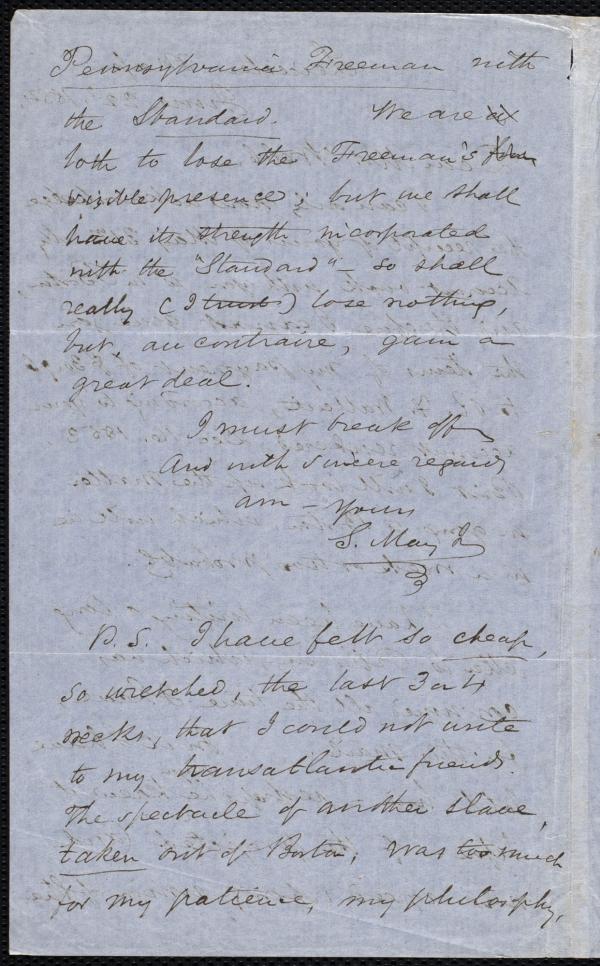 Pennsylvania Freeman with
the Standard. We are
loth to lose the Freeman's
visible presence; but we shall
have its strength incorporated
with the "Standard" - so shall
really (I trust) lose nothing,
but, au contraire, gain a
great deal.
I must break off
And with sincere regards
am - Yours
S. May Jr
P.S. I have felt so cheap,
so wretched, the last 3 or 4
weeks, that I could not write
to my transatlantic friends.
The spectacle of another slave,
taken out of Boston, was too much
for my patience, my philosophy,